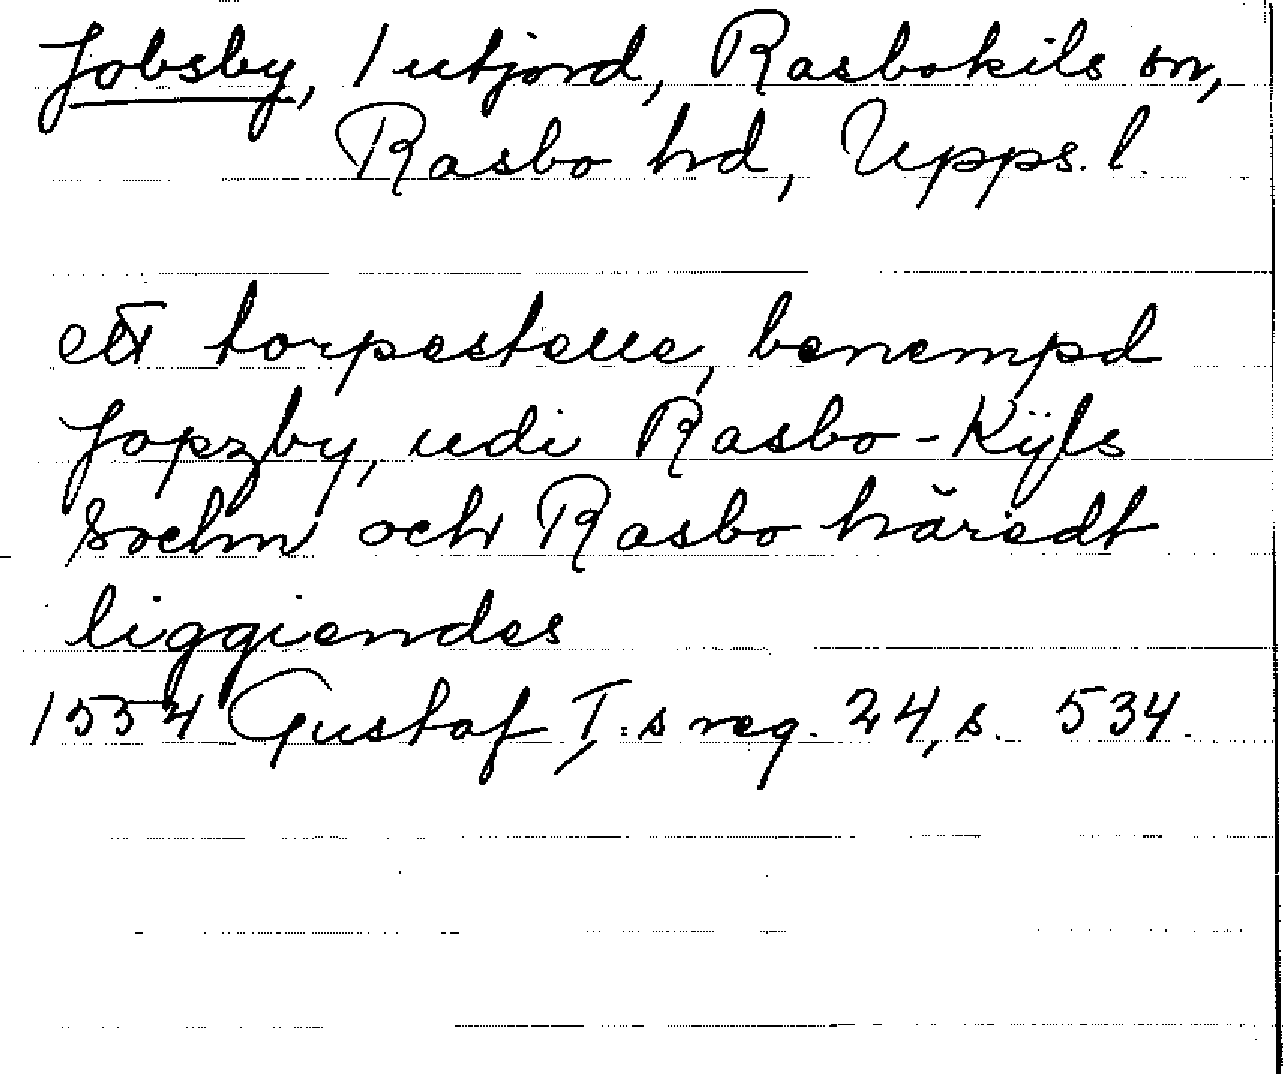 Jobsby, 1 utjord, Rasbokils sn,
Rasbo hd, Upps. l.
ett torpestelle, benempd
Jopzby, udi Rasbo-Kijls
sochn och Rasbo häredt
liggiendes
1554 Gustaf I:s reg. 24, s. 534.